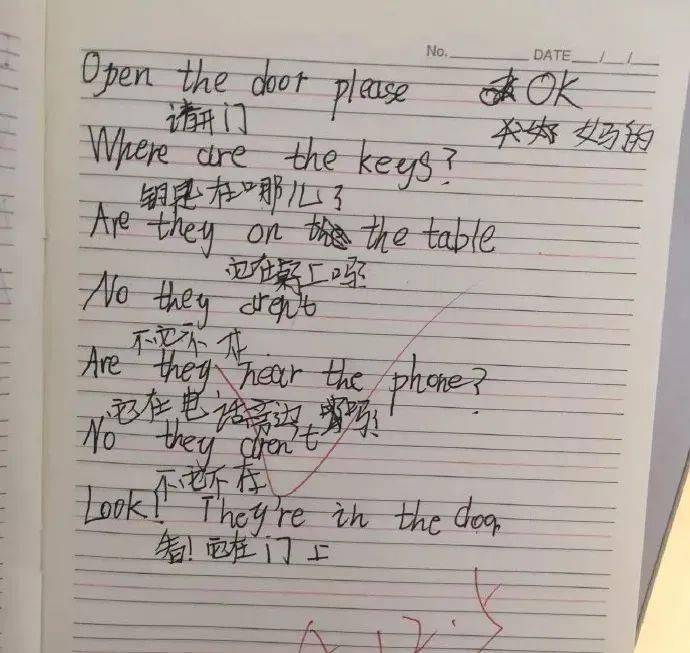 No. DATE / /
Open the door please OK
请开门 妈的
Where are the keys?
钥匙在哪儿？
Are they on the table
它在桌上吗？
No they aren't
不它不在
Are they near the phone?
它在电话旁边吗？
No they aren't
不它不在
Look! They're in the door.
看！它在门上